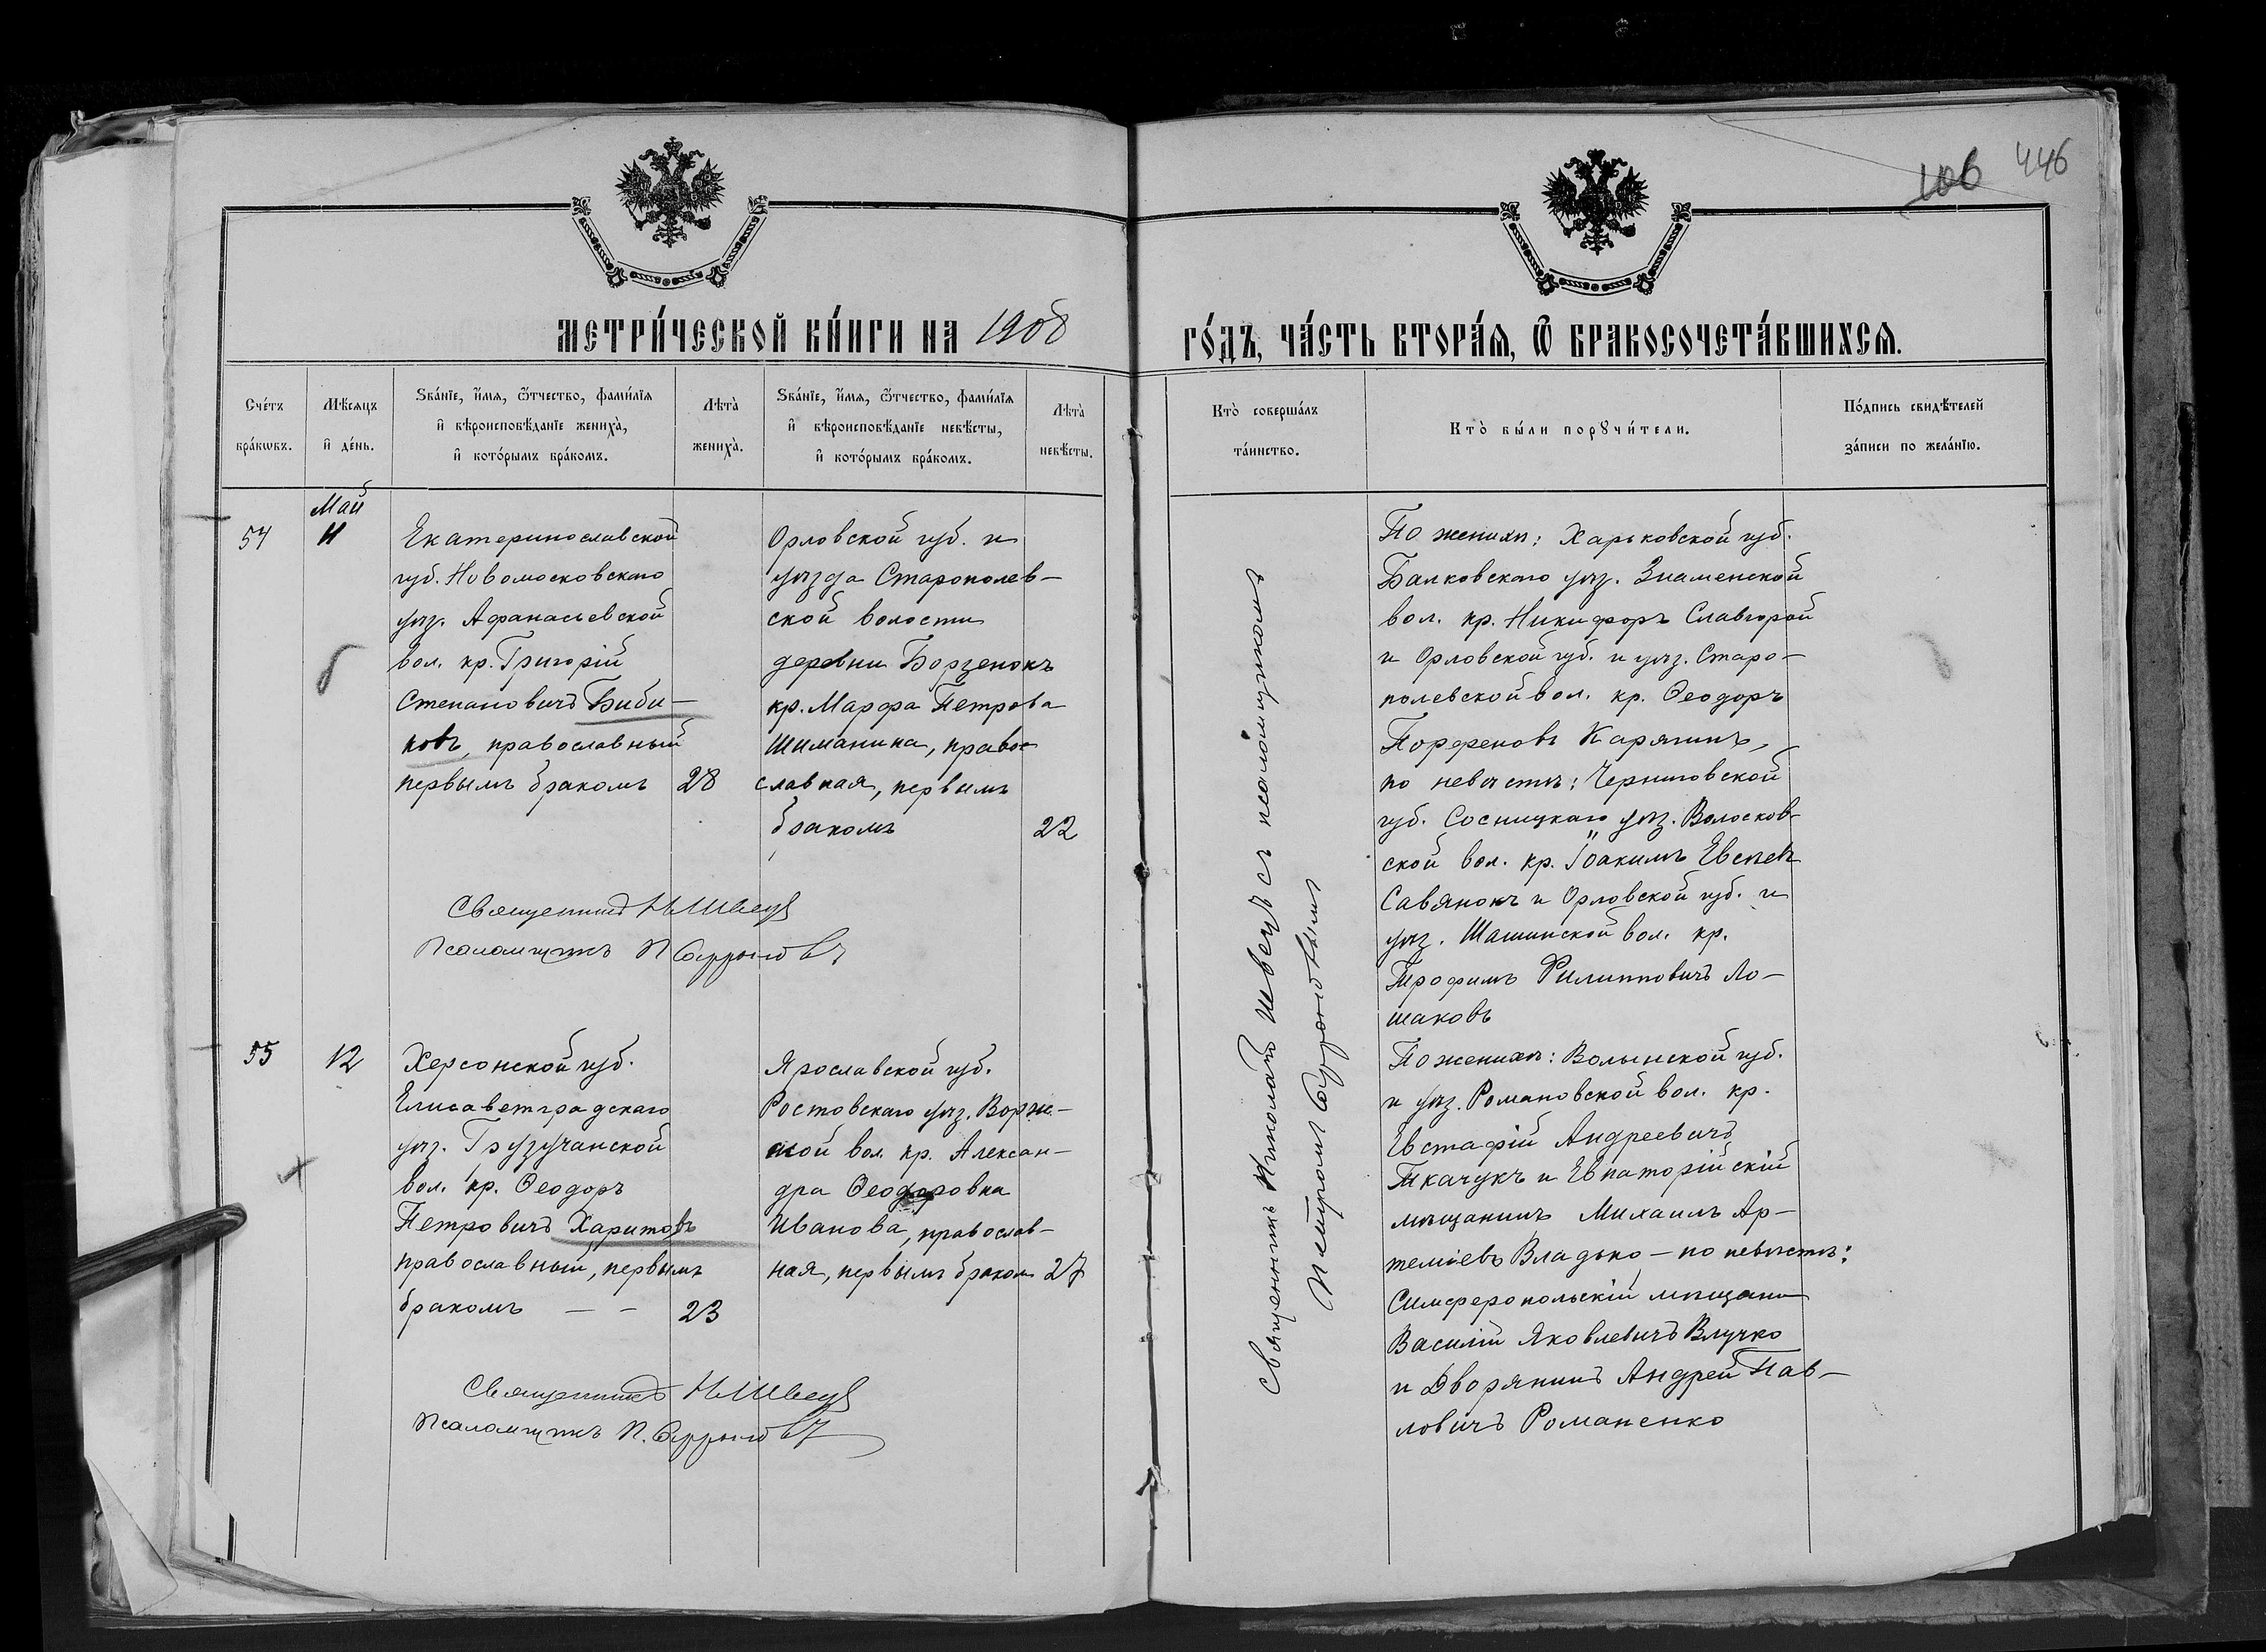 106 446
МЕТРИ́ЧЕСКОЙ КНИ́ГИ НА 1908
ГО́ДЪ, ЧА́СТЬ ВТОРА́Я, Ѿ БРАКОСОЧЕТА́ВШИХСЯ.
Сче́тъ бра́кωвъ.
Мѣ́сяцъ и҆ де́нь.
Ѕва́нїе, и҆́мя, ѻ҆́тчество, фами́лїя
и҆ вѣроисповѣ́данїе жениха̀,
и҆ кото́рымъ бра́комъ.
Лѣта̀ жениха̀.
Ѕва́нїе, и҆́мя, ѻ҆́тчество, фами́лїя
и҆ вѣроисповѣ́данїе невѣ́сты,
и҆ кото́рымъ бра́комъ.
Лѣта̀ невѣ́сты.
Кто̀ соверша́лъ та́инство.
Кто̀ бы́ли порꙋчи́тели.
По́дпись свидѣ́телей
за́писи по жела́нїю.
Май
54
11
Екатеринославской
губ. Новомосковскаго
уѣз. Афанасьевской
вол. кр. Григорій
Степановичъ Биби-
ковъ, православный
первымъ бракомъ 28
Орловской губ. и
уѣзда Старополев-
ской волости
деревни Борзенокъ
кр. Марфа Петрова
Шиманина, право-
славная, первымъ
бракомъ 22
Священникъ Н Швецъ
Псаломщикъ П Софроновъ
Священникъ Николай Швецъ съ псаломщикомъ
Петромъ Софроновымъ
По женихѣ: Харьковской губ.
Валковскаго уѣз. Знаменской
вол. кр. Никифоръ Славгорой
и Орловской губ. и уѣз. Старо-
полевской вол. кр. Ѳеодоръ
Порфеновъ Карягинъ,
по невѣстѣ: Черниговской
губ. Сосницкаго уѣз. Волосков-
ской вол. кр. Іоакимъ Евсѣевъ
Савянокъ и Орловской губ. и
уѣз. Шашинской вол. кр.
Трофимъ Филипповичъ Ло-
шаковъ
55
12
Херсонской губ.
Елисаветградскаго
уѣз. Грузучанской
вол. кр. Ѳеодоръ
Петровичъ Харитовъ
православный, первымъ
бракомъ — — 23
Ярославской губ.
Ростовскаго уѣз. Ворж-
ской вол. кр. Алексан-
дра Ѳеодоровна
Иванова, православ-
ная, первымъ браком 27
Священникъ Н Швецъ
Псаломщикъ П. Софроновъ
По женихѣ: Волынской губ.
и уѣз. Романовской вол. кр.
Евстафій Андреевичъ
Ткачукъ и Евпаторійскій
мѣщанинъ Михаилъ Ар-
теміевъ Владыко — по невѣстѣ:
Симферопольскій мѣщани
Василій Яковлевичъ Влучко
и Дворянинъ Андрей Пав-
ловичъ Романенко